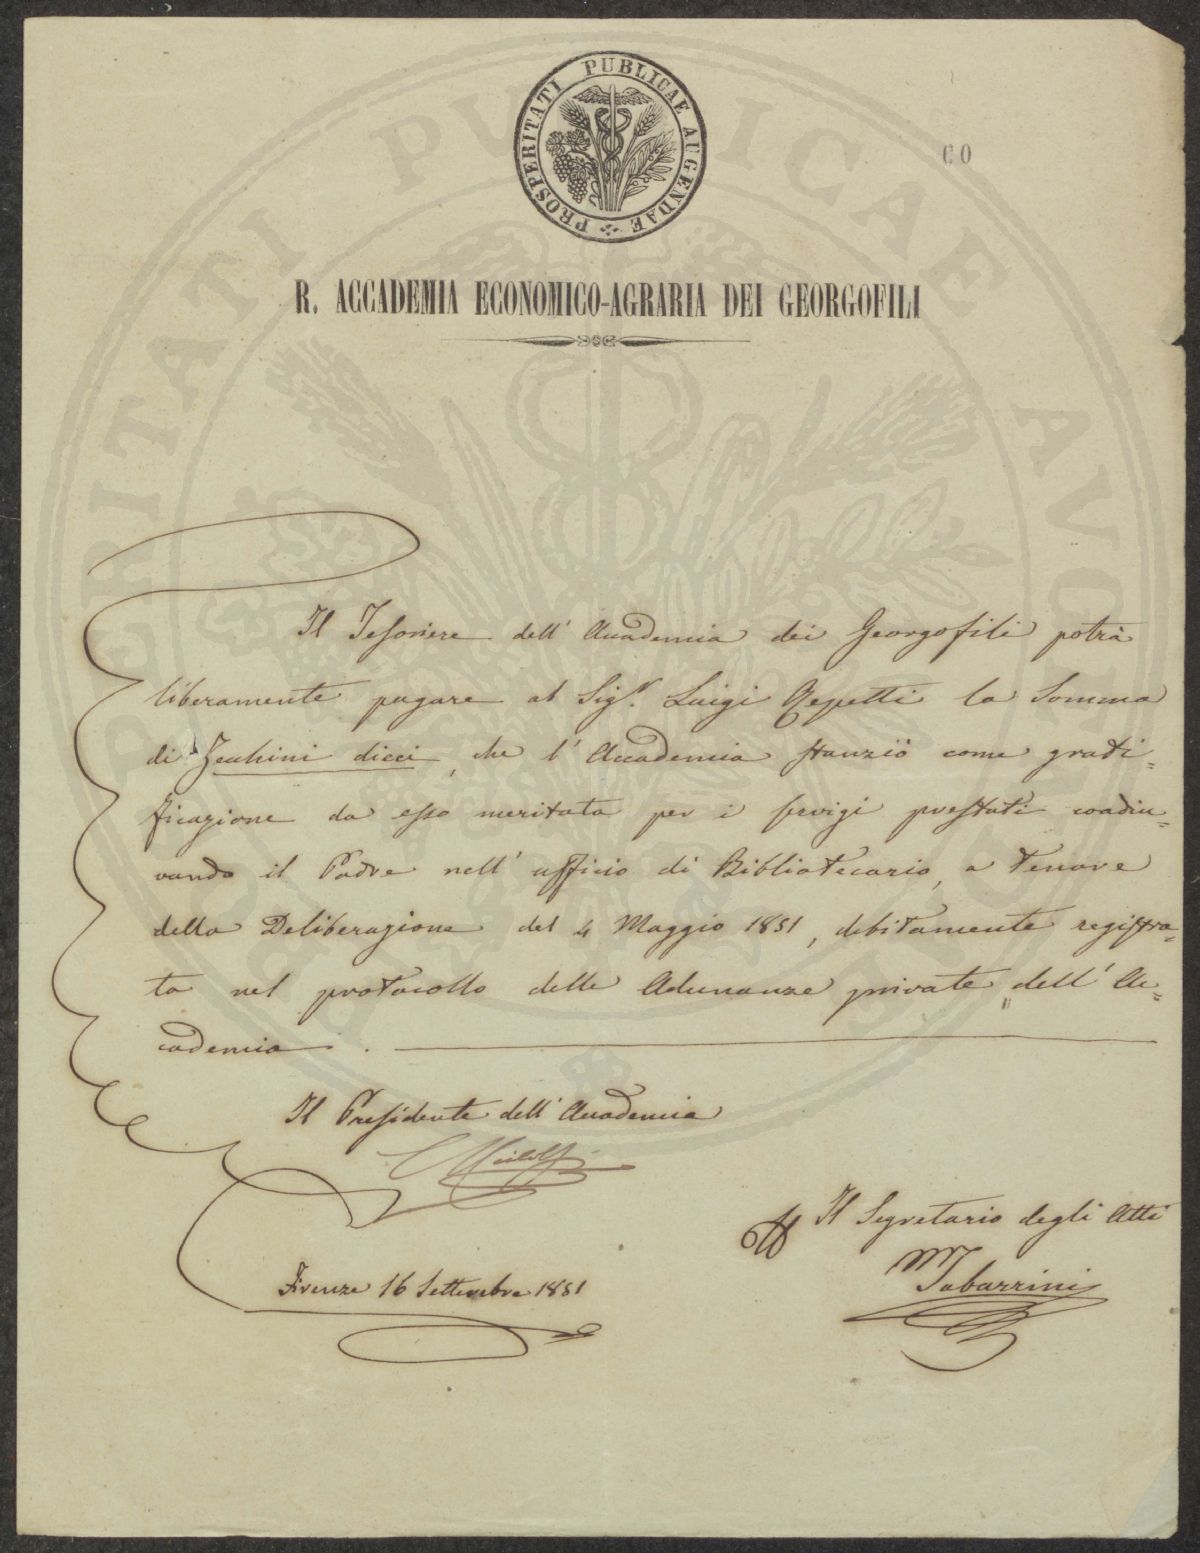 PROSPERITATI PUBLICAE AUGENDAE
60
R. ACCADEMIA ECONOMICO-AGRARIA DEI GEORGOFILI
Il Tesoriere dell' Accademia dei Georgofili potrà
liberamente pagare al Sig.r Luigi Repetti la Somma
di Zecchini dieci, che l' Accademia stanziò come grati=
ficazione da esso meritata per i servigi prestati coadiu=
vando il Padre nell' ufficio di Bibliotecario, a tenore
della Deliberazione del 4 Maggio 1851, debitamente registra=
ta nel protocollo delle Adunanze private dell' Ac=
cademia.
Il Presidente dell' Accademia
C Ridolfi
Il Segretario degli Atti
M Tabarrini
Firenze 16 Settembre 1851